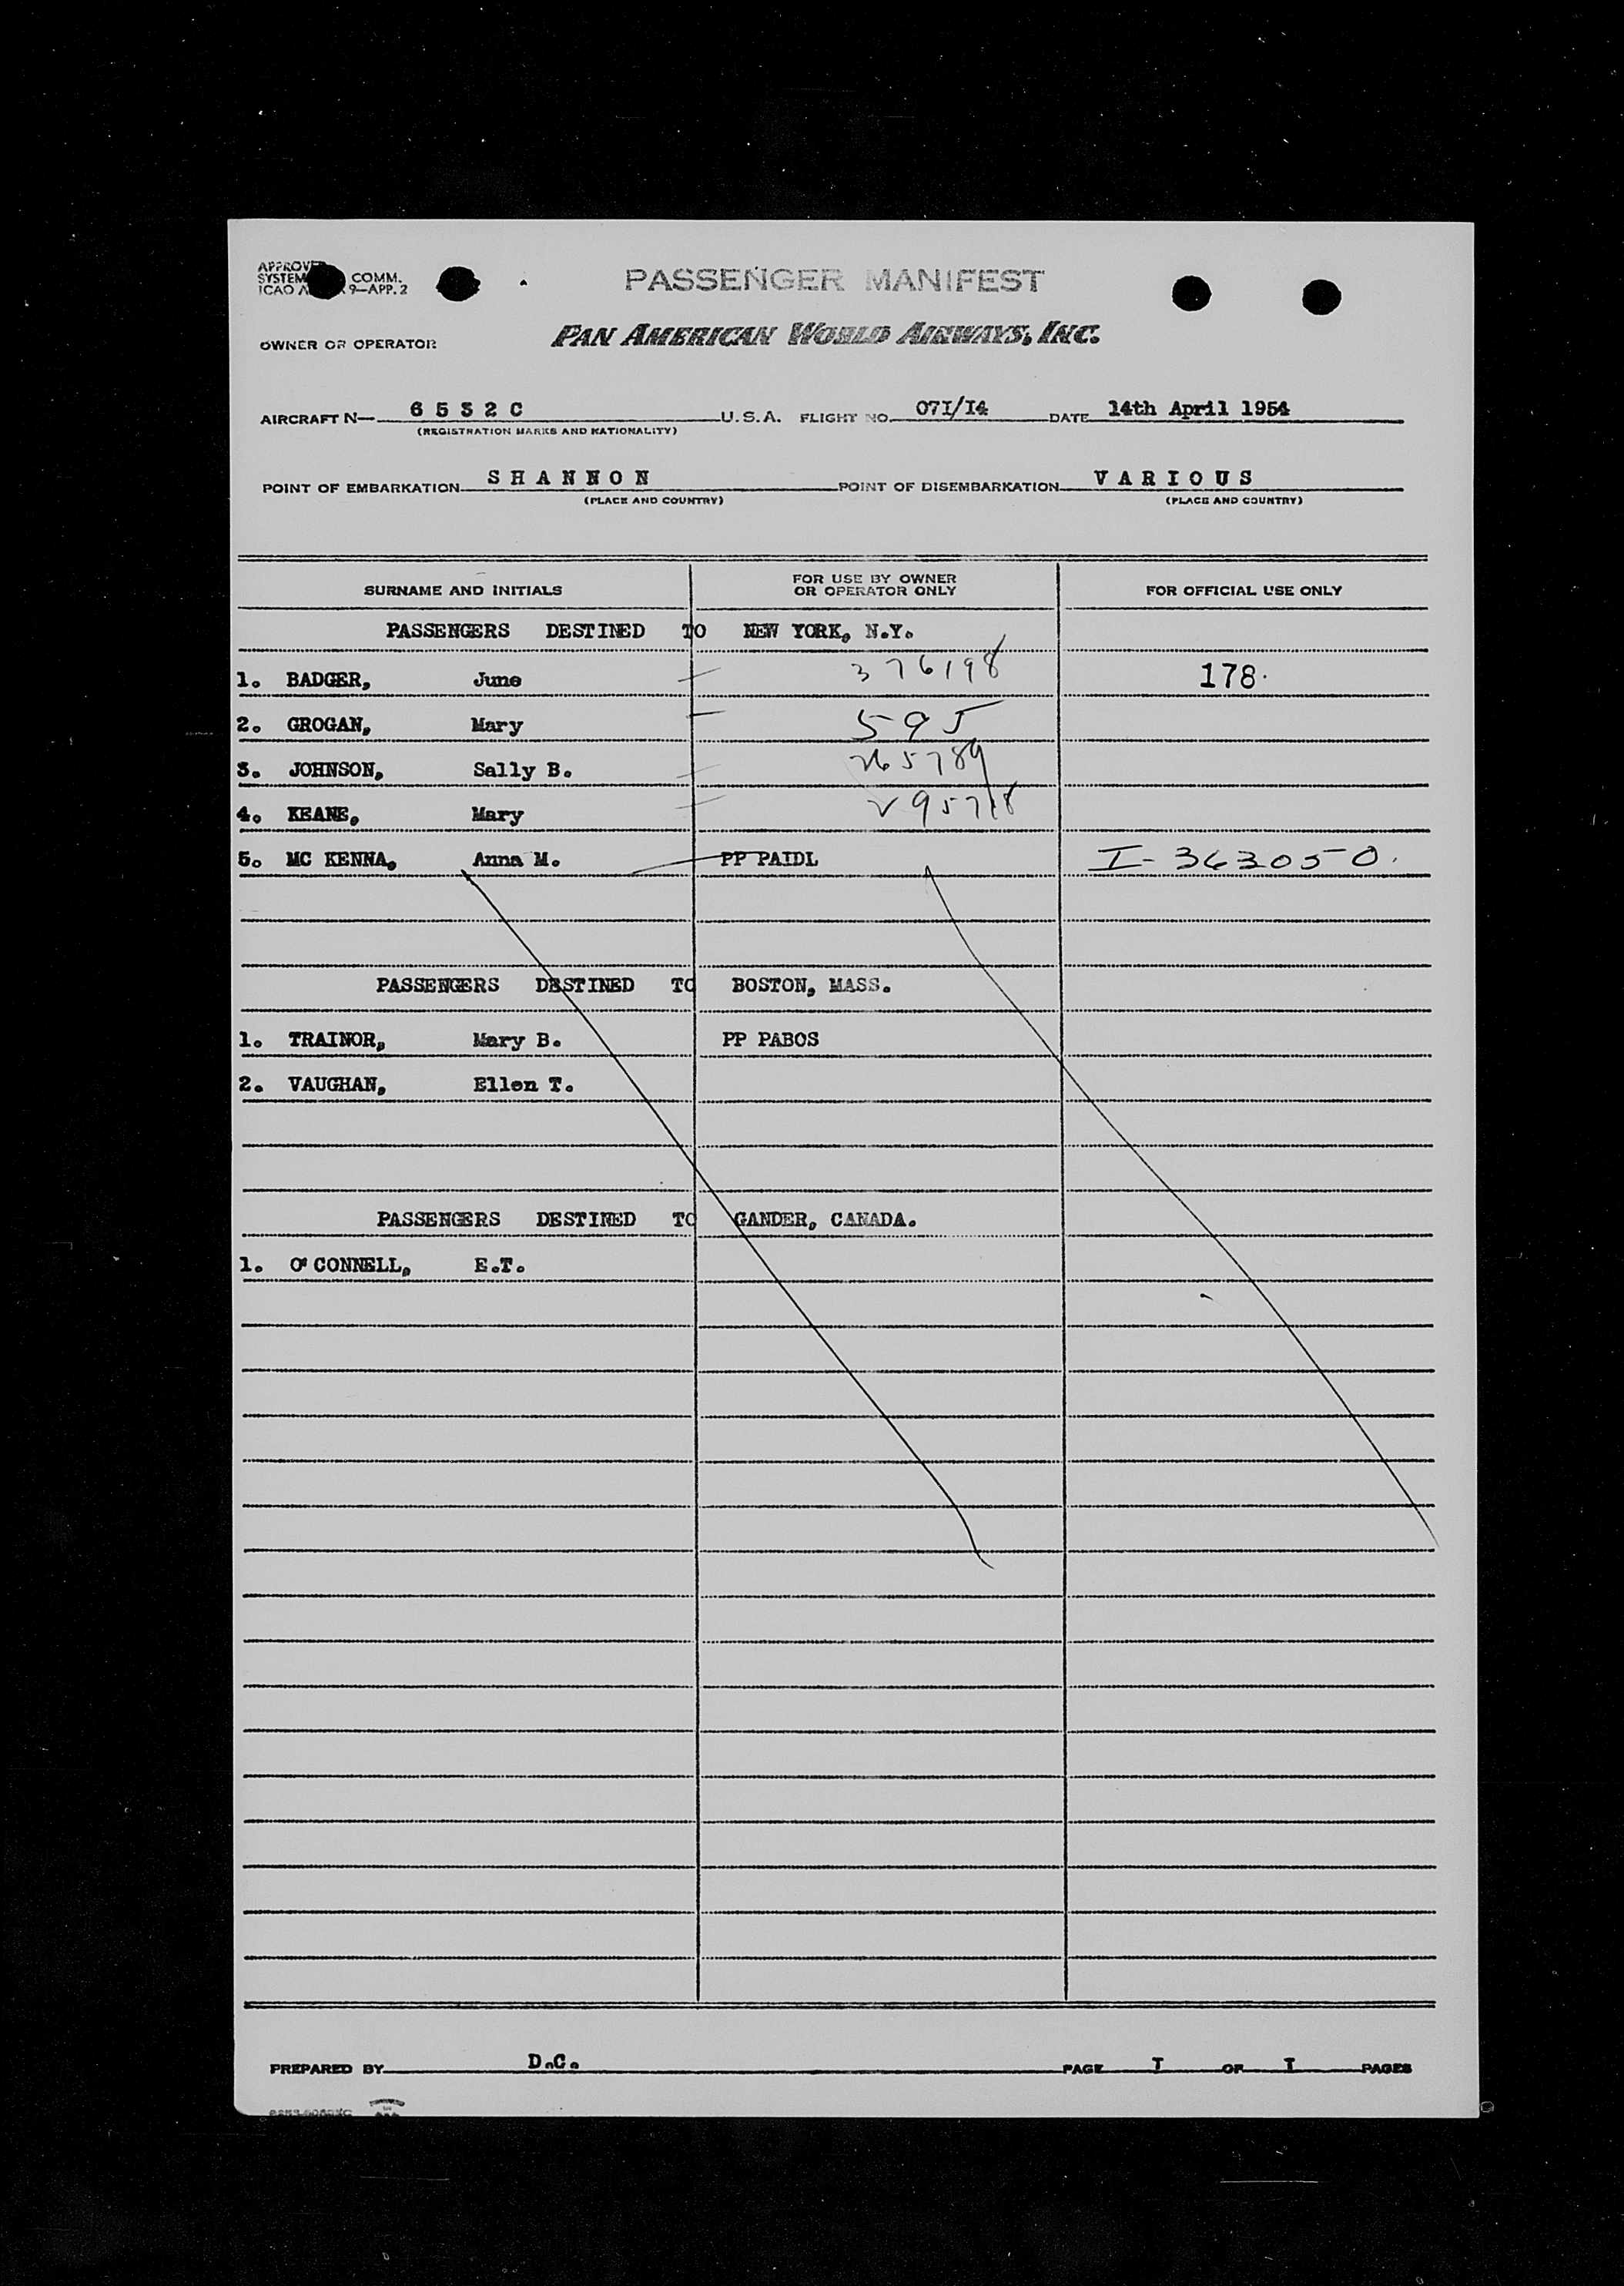 APPROVED
SYSTEM COMM.
ICAO 9—APP. 2
PASSENGER MANIFEST
OWNER OR OPERATOR PAN AMERICAN WORLD AIRWAYS, INC.
AIRCRAFT N— 6 5 3 2 C U.S.A. FLIGHT NO. 071/14 DATE 14th April 1954
(REGISTRATION MARKS AND NATIONALITY)
POINT OF EMBARKATION S H A N N O N POINT OF DISEMBARKATION V A R I O U S
(PLACE AND COUNTRY) (PLACE AND COUNTRY)
SURNAME AND INITIALS FOR USE BY OWNER OR OPERATOR ONLY FOR OFFICIAL USE ONLY
PASSENGERS DESTINED TO NEW YORK, N.Y.
1. BADGER, June 376198 178.
2. GROGAN, Mary 595
3. JOHNSON, Sally B. 265789
4. KEANE, Mary 295718
5. MC KENNA, Anna M. PP PAIDL I-363050.
PASSENGERS DESTINED TO BOSTON, MASS.
1. TRAINOR, Mary B. PP PABOS
2. VAUGHAN, Ellen T.
PASSENGERS DESTINED TO GANDER, CANADA.
1. O'CONNELL, E.T.
PREPARED BY D.C. PAGE I OF I PAGES